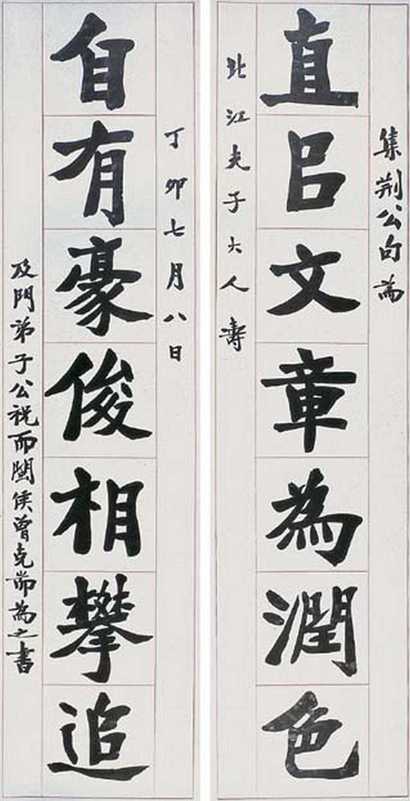 集荆公句為
直㠯文章為潤色
北江夫子大人壽
丁卯七月八日
自有豪俊相攀追
及門弟子公祝而閩侯曾克耑為之書